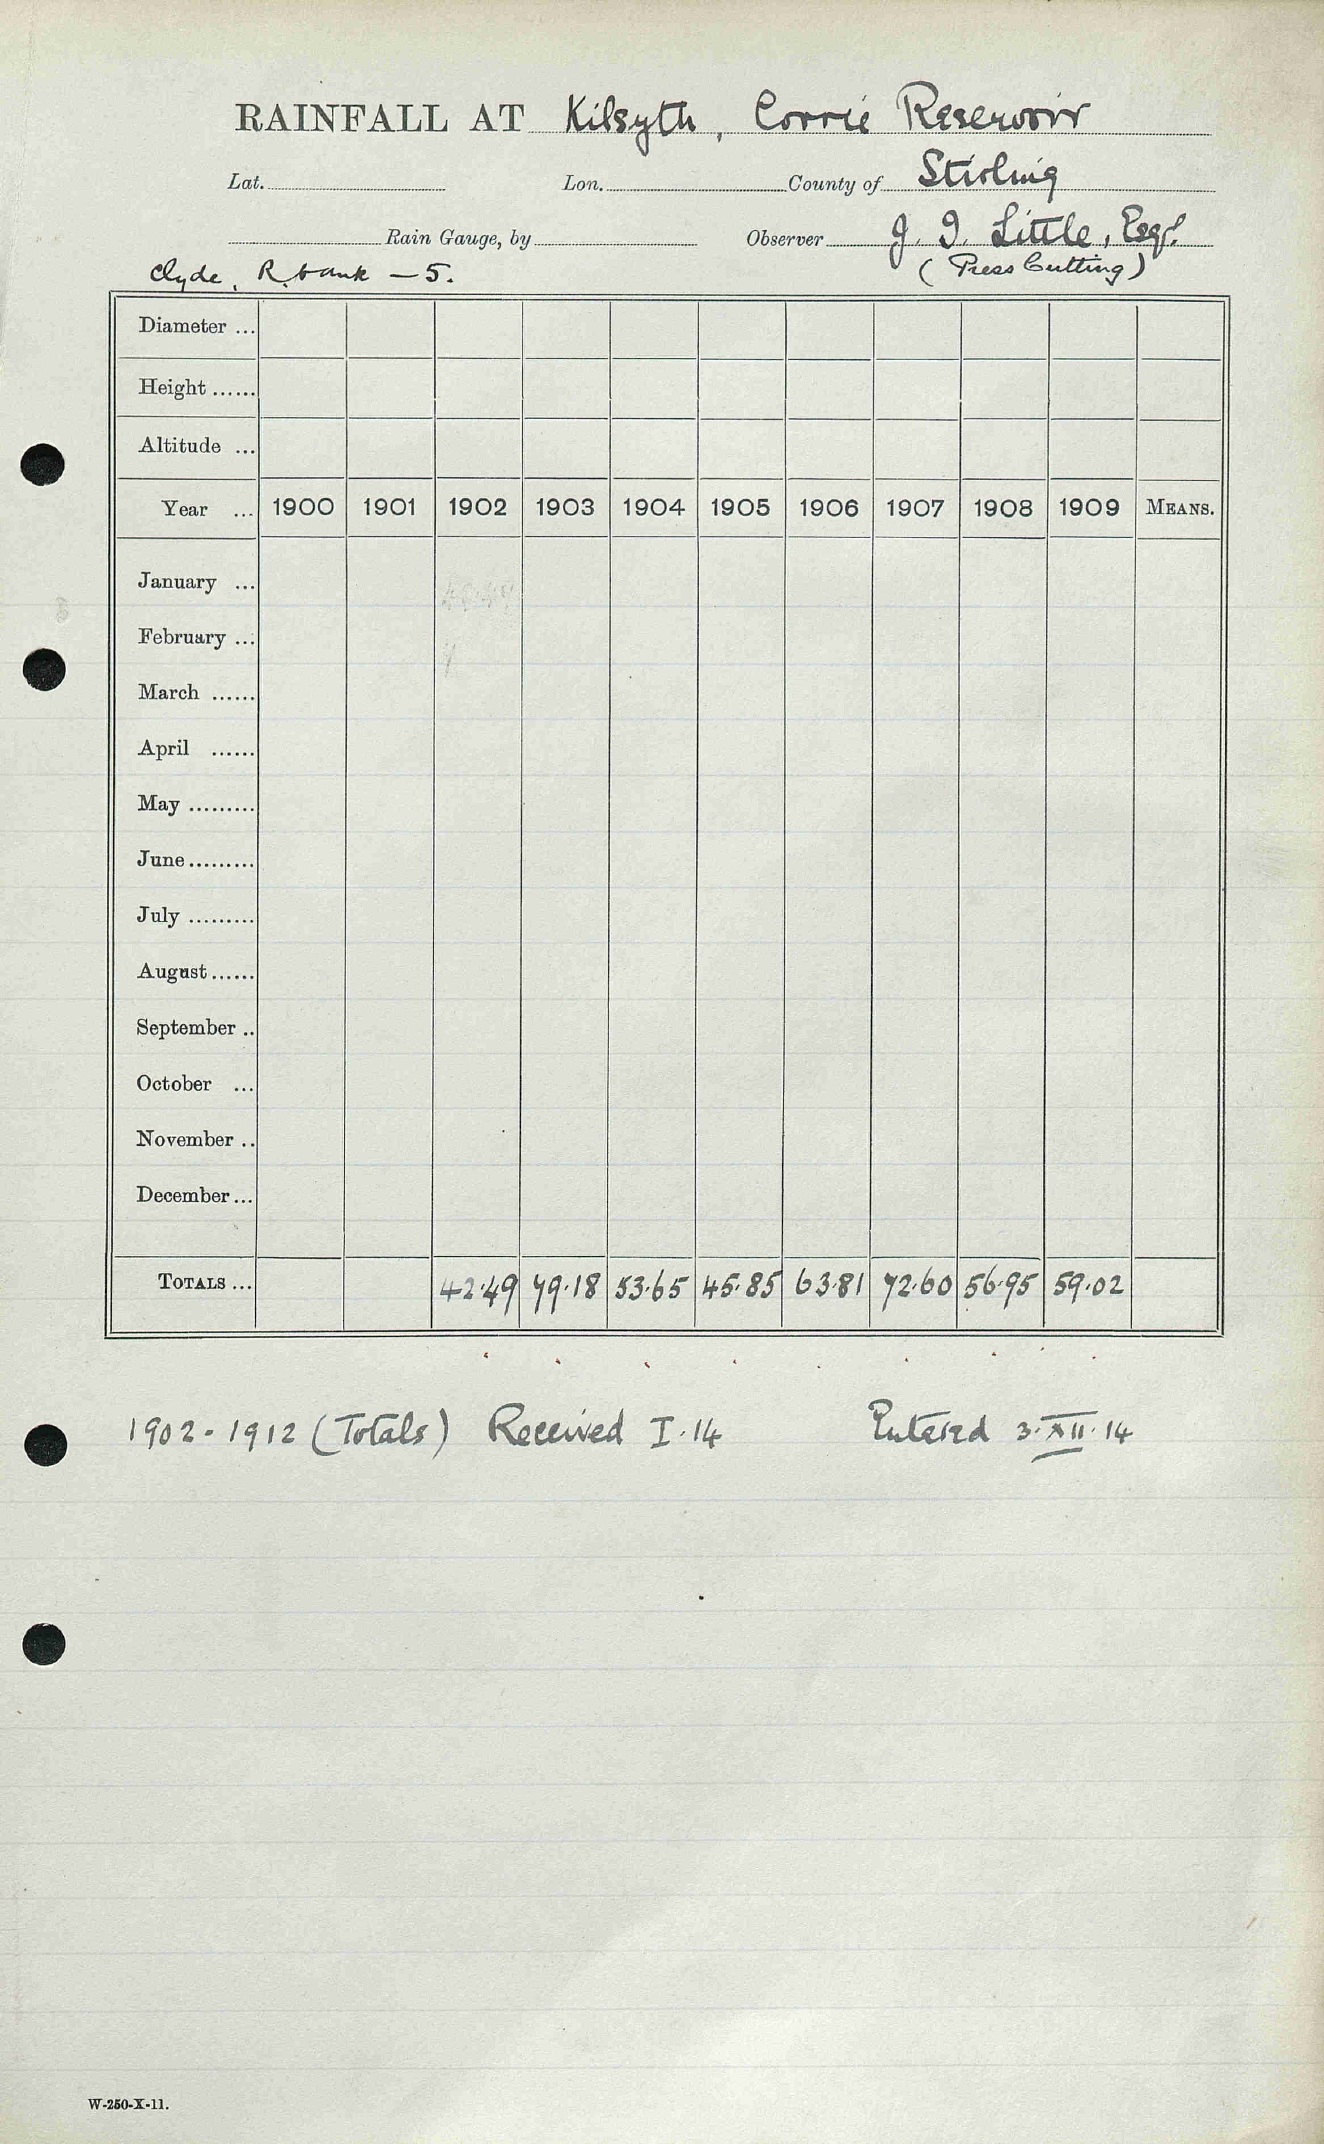 RAINFALL AT Kilsyth, Corrie Reservoir
Lat. Lon. County of Stirling
Rain Gauge, by Observer J. I. Little, Esq.
Clyde, R. bank — 5. (Press Cutting)
Diameter ...
Height ......
Altitude ...
Year ... 1900 1901 1902 1903 1904 1905 1906 1907 1908 1909 MEANS.
January ...
February ...
March ......
April ......
May .........
June .........
July .........
August ......
September ..
October ...
November ..
December ...
TOTALS ... 42.49 79.18 53.65 45.85 63.81 72.60 56.95 59.02
1902-1912 (Totals) Received I.14 Entered 3.XII.14
W-250-X-11.